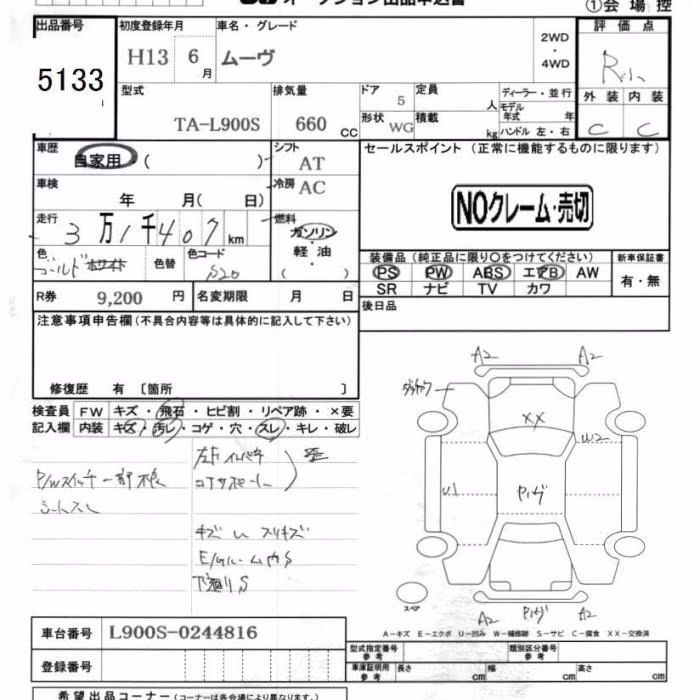 オークション出品申込書
①会場控
出品番号 初度登録年月 車名・グレード 2WD・4WD 評価点
5133 H13 6月 ムーヴ
外装 内装
C C
型式 排気量 ドア 定員 ディーラー・並行
TA-L900S 660 CC 5 人 モデル年式 年
形状 積載 WG kg ハンドル 左・右
車歴 自家用・( ) シフト AT セールスポイント(正常に機能するものに限ります)
車検 年 月( 日) 冷房 AC
NOクレーム・売切
走行 3万1千407km 燃料 ガソリン・軽油・( )
色 ゴールド ホワイト 色替 色コード S20
装備品(純正品に限り○をつけてください) 新車保証書
PS PW ABS エアB AW 有・無
SR ナビ TV カワ
R券 9,200円 名変期限 月 日 後日品
注意事項申告欄(不具合内容等は具体的に記入して下さい)
修復歴 有〔箇所 〕
検査員 FW キズ・飛石・ヒビ割・リペア跡・×要
記入欄 内装 キズ・汚レ・コゲ・穴・スレ・キレ・破レ
P/Wスイッチ一部不良
シートスレ
コアサポート
キズ U スリキズ
E/Gルーム内S
下廻りS
A2 A2
XX
W2
U1
Pハゲ
スペア
A2 Pハゲ A2
A-キズ E-エクボ U-凹み W-補修跡 S-サビ C-腐食 XX-交換済
車台番号 L900S-0244816
登録番号
型式指定番号 参考 類別区分番号 参考
車庫証明用 参考 長さ cm 幅 cm 高さ cm
希望出品コーナー(コーナーは各会場により異なります)